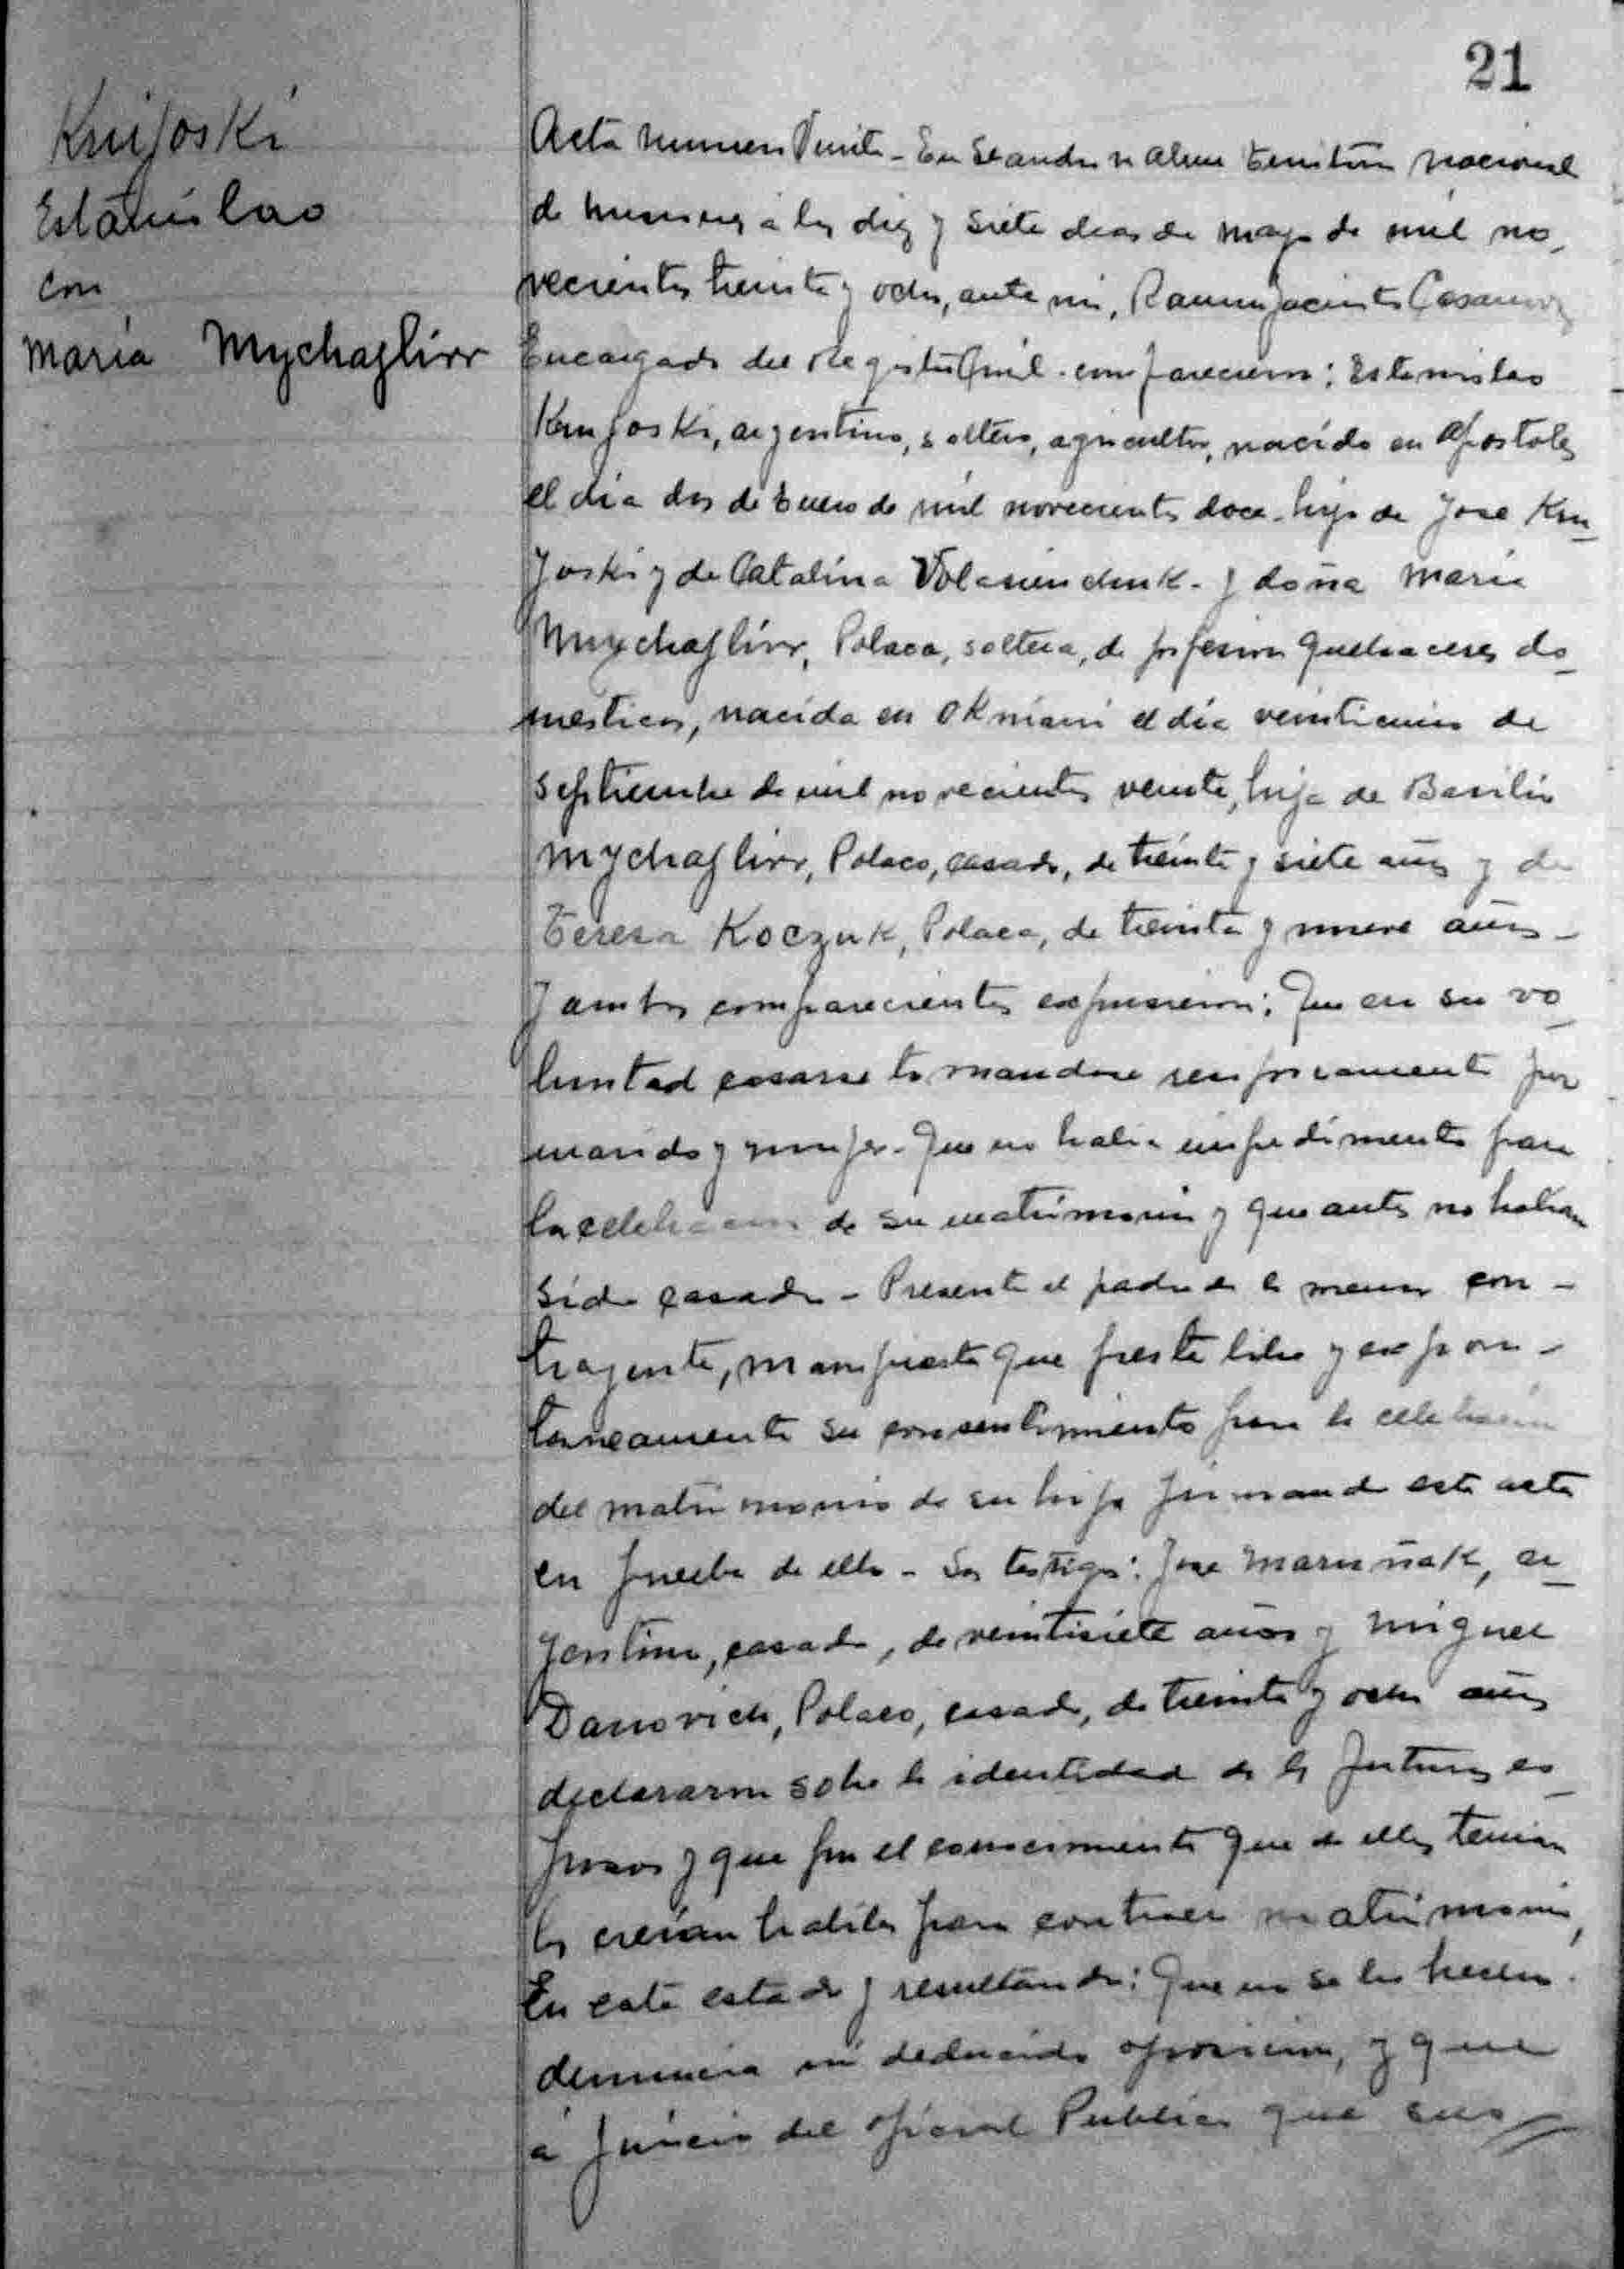 21
Knijoski
Estanislao
con
Maria Mychajlirr
Acta numero Veinte - En Leandro N Alem territorio nacional
de Misiones a los diez y siete dias de mayo de mil no_
vecientos treinta y ocho, ante mi, Ramon Jacinto
Encargado del Registro Civil. comparecieron: Estanislao
Knijoski, argentino, soltero, agricultor, nacido en Apostoles
el dia dos de Enero de mil novecientos doce. hijo de Jose Kni_
joski y de Catalina - y doña Maria
Mychajlirr, Polaca, soltera, de profesion quehaceres do_
mesticos, nacida en el dia veinticinco de
Septiembre de mil novecientos veinte, hija de Basilio
Mychajlirr, Polaco, casado, de treinta y siete años y de
Teresa Koczuk, Polaca, de treinta y nueve años -
Y ambos comparecientes expusieron: Que era su vo_
luntad casarse tomandose reciprocamente por
marido y mujer. Que no habia impedimento para
la celebracion de su matrimonio y que antes no habian
sido casados - Presente el padre de la menor con -
trayente, manifiesta que presta libre y expon -
taneamente su consentimiento para la celebracion
del matrimonio de su hija firmando esta acta
en prueba de ello - Los testigos: Jose Maruñak, ar_
jentino, casado, de veintisiete años y Miguel
Danovich, Polaco, casado, de treinta y ocho años
declararon sobre la identidad de los futuros es_
posos y que por el conocimiento que de ellos tenian
los creian habiles para contraer matrimonio,
En este estado y resultando: Que no se les hecho
denuncia ni deducido oposicion, y que
á juicio del oficial Publico que sus